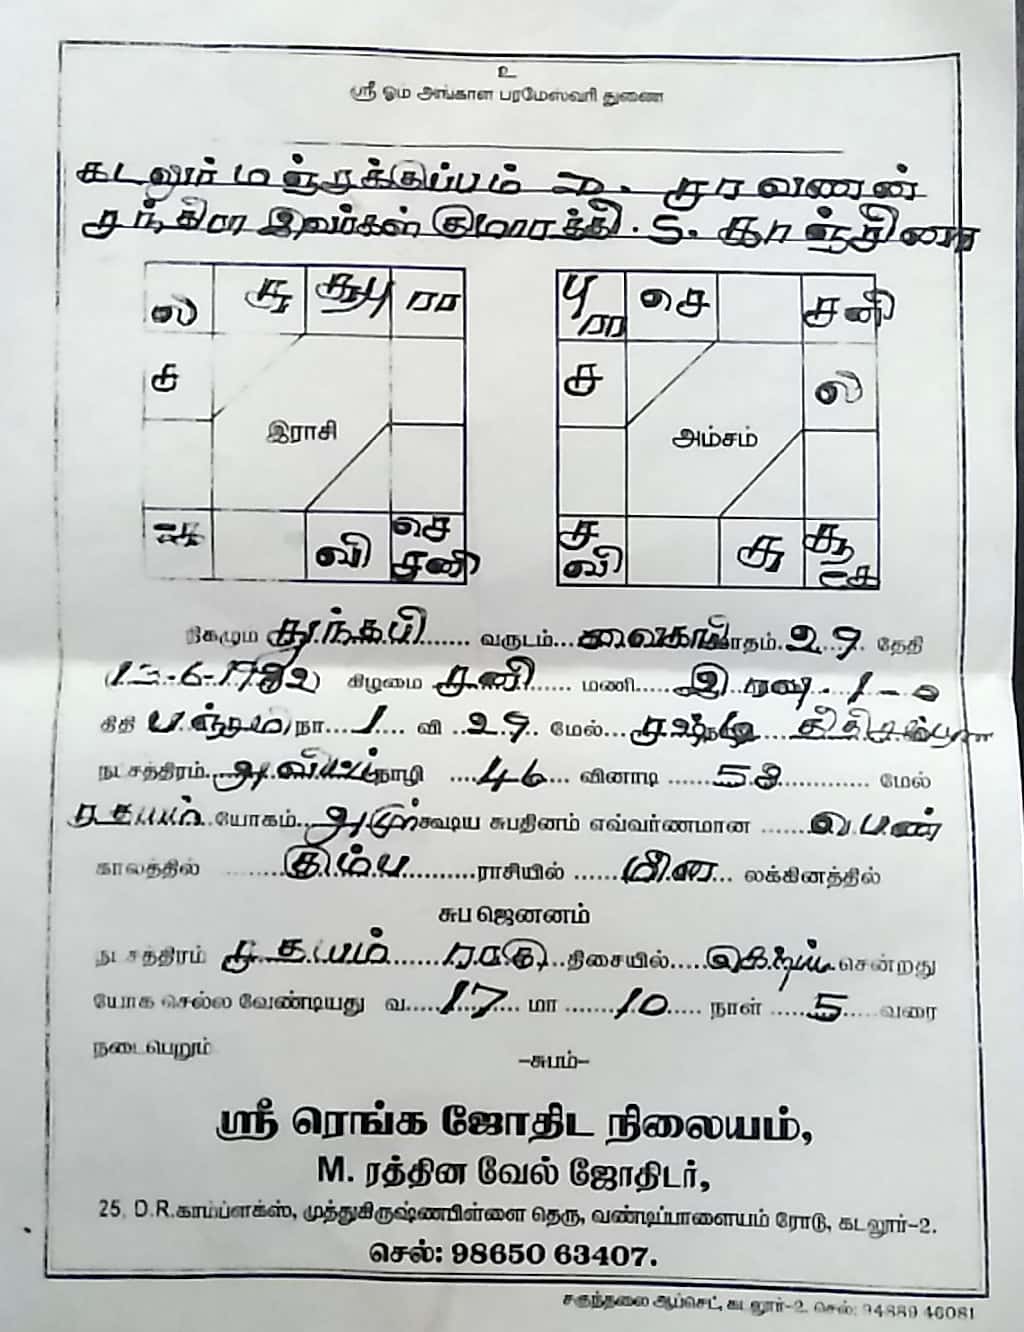 உ
ஸ்ரீ ஓம் அங்காள பரமேஸ்வரி துணை
கடலூர் மஞ்சக்குப்பம் D. சரவணன்
சந்திரா இவர்கள் குமாரத்தி. S. சாஞ்சினா
ல சு சூபு ரா
ச
இராசி
கே வி செ சனி
பு ரா செ சனி
ச ல
அம்சம்
ச வி சு சூ கே
நிகழும் துந்துபி வருடம் வைகாசி மாதம் 29 தேதி
(12-6-1982) கிழமை சனி மணி இரவு 1-0
திதி பஞ்சமி நா 1 வி 29 மேல் சஷ்டி திதி
நட்சத்திரம் அவிட்டம் நாழி 46 வினாடி 53 மேல்
சதயம் யோகம் கூடிய சுபதினம் எவ்வர்ணமான பெண்
காலத்தில் கும்ப ராசியில் மீன லக்கினத்தில்
சுப ஜெனனம்
நட்சத்திரம் சதயம் ராகு திசையில் கெர்ப்ப சென்றது
போக செல்ல வேண்டியது வ 17 மா 10 நாள் 5 வரை
நடைபெறும்
-சுபம்-
ஸ்ரீ ரெங்க ஜோதிட நிலையம்,
M. ரத்தின வேல் ஜோதிடர்,
25, D.R.காம்ப்ளக்ஸ், முத்துகிருஷ்ணபிள்ளை தெரு, வண்டிப்பாளையம் ரோடு, கடலூர்-2.
செல்: 98650 63407.
சகுந்தலை ஆப்செட், கடலூர்-2. செல்: 94889 46081